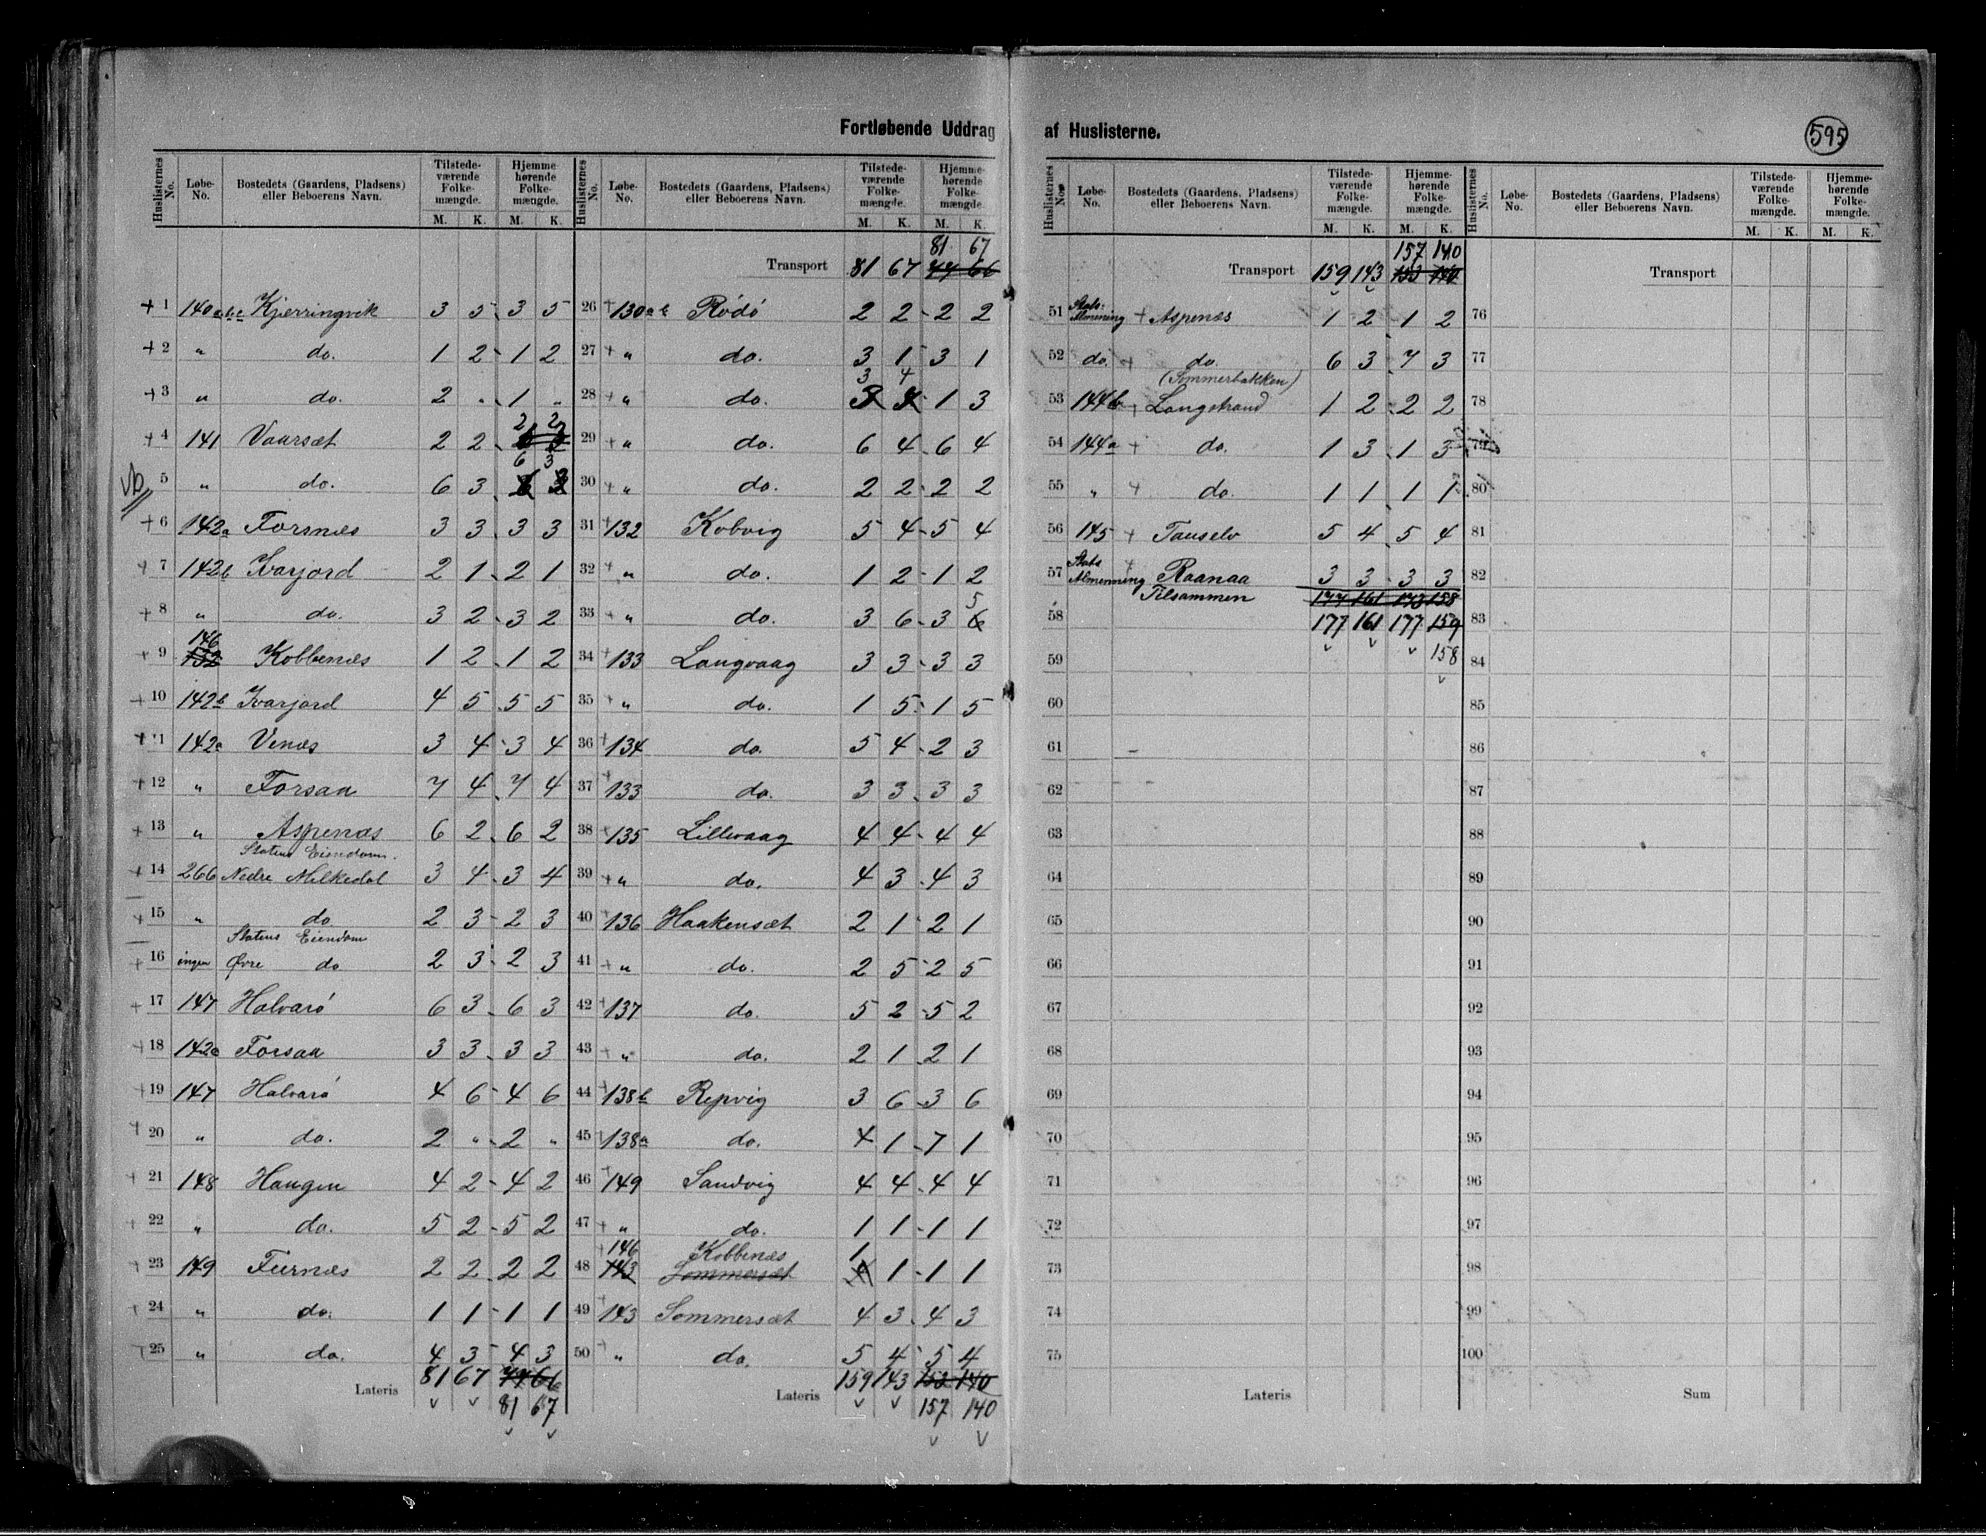 Fortløbende Uddrag af Huslisterne.
595
Huslisternes No. Løbe-No. Bostedets (Gaardens, Pladsens) eller Beboerens Navn. Tilstedeværende Folkemængde. M. K. Hjemmehørende Folkemængde. M. K.
1 140abc Kjerringvik 3 5 3 5
2 " do. 1 2 1 2
3 " do. 2 " 1 "
4 141 Vaarsæt 2 2 2 2
5 " do. 6 3 6 3
6 142a Forsnæs 3 3 3 3
7 142b Ivarjord 2 1 2 1
8 " do. 3 2 3 2
9 146 Kobbenæs 1 2 1 2
10 142b Ivarjord 4 5 5 5
11 142a Venæs 3 4 3 4
12 " Forsaa 7 4 7 4
13 " Aspenæs 6 2 6 2
Statens Eiendom.
14 266 Nedre Milkedal 3 4 3 4
15 " do 2 3 2 3
Statens Eiendom
16 ingen Øvre do 2 3 2 3
17 147 Halvarö 6 3 6 3
18 142a Forsaa 3 3 3 3
19 147 Halvarö 4 6 4 6
20 " do. 2 " 2 "
21 148 Haugen 4 2 4 2
22 " do. 5 2 5 2
23 149 Fiernæs 2 2 2 2
24 " do. 1 1 1 1
25 " do. 4 3 4 3
Lateris 81 67 77 66
81 67
Huslisternes No. Løbe-No. Bostedets (Gaardens, Pladsens) eller Beboerens Navn. Tilstedeværende Folkemængde. M. K. Hjemmehørende Folkemængde. M. K.
81 67
Transport 81 67 77 66
26 130ab Rödö 2 2 2 2
27 " do. 3 1 3 1
28 " do. 3 4 1 3
29 " do. 6 4 6 4
30 " do. 2 2 2 2
31 132 Kobvig 5 4 5 4
32 " do. 1 2 1 2
33 " do. 3 6 3 5
34 133 Langvaag 3 3 3 3
35 " do. 1 5 1 5
36 134 do. 5 4 2 3
37 133 do. 3 3 3 3
38 135 Lillevaag 4 4 4 4
39 " do. 4 3 4 3
40 136 Haakensæt 2 1 2 1
41 " do. 2 5 2 5
42 137 do. 5 2 5 2
43 " do. 2 1 2 1
44 138b Repvig 3 6 3 6
45 138a do. 7 1 7 1
46 149 Sandvig 4 4 4 4
47 " do. 1 1 1 1
146 Kobbenæs 1
48 143 Sommersæt 1 1 1
49 143 Sommersæt 4 3 4 3
50 " do. 5 4 5 4
Lateris 159 143 153 140
157 140
Huslisternes No. Løbe-No. Bostedets (Gaardens, Pladsens) eller Beboerens Navn. Tilstedeværende Folkemængde. M. K. Hjemmehørende Folkemængde. M. K.
157 140
Transport 159 143 153 140
51 Stats-Almenning Aspenæs 1 2 1 2
52 do. do. 6 3 7 3
(Sommerbakken)
53 144b Langstrand 1 2 2 2
54 144a do. 1 3 1 3
55 " do. 1 1 1 1
56 145 Tauselv 5 4 5 4
57 Stats Almenning Raanaa 3 3 3 3
Tilsammen 177 161 173 158
58 177 161 177 159
59 158
60
61
62
63
64
65
66
67
68
69
70
71
72
73
74
75
Lateris
Huslisternes No. Løbe-No. Bostedets (Gaardens, Pladsens) eller Beboerens Navn. Tilstedeværende Folkemængde. M. K. Hjemmehørende Folkemængde. M. K.
Transport
76
77
78
79
80
81
82
83
84
85
86
87
88
89
90
91
92
93
94
95
96
97
98
99
100
Sum